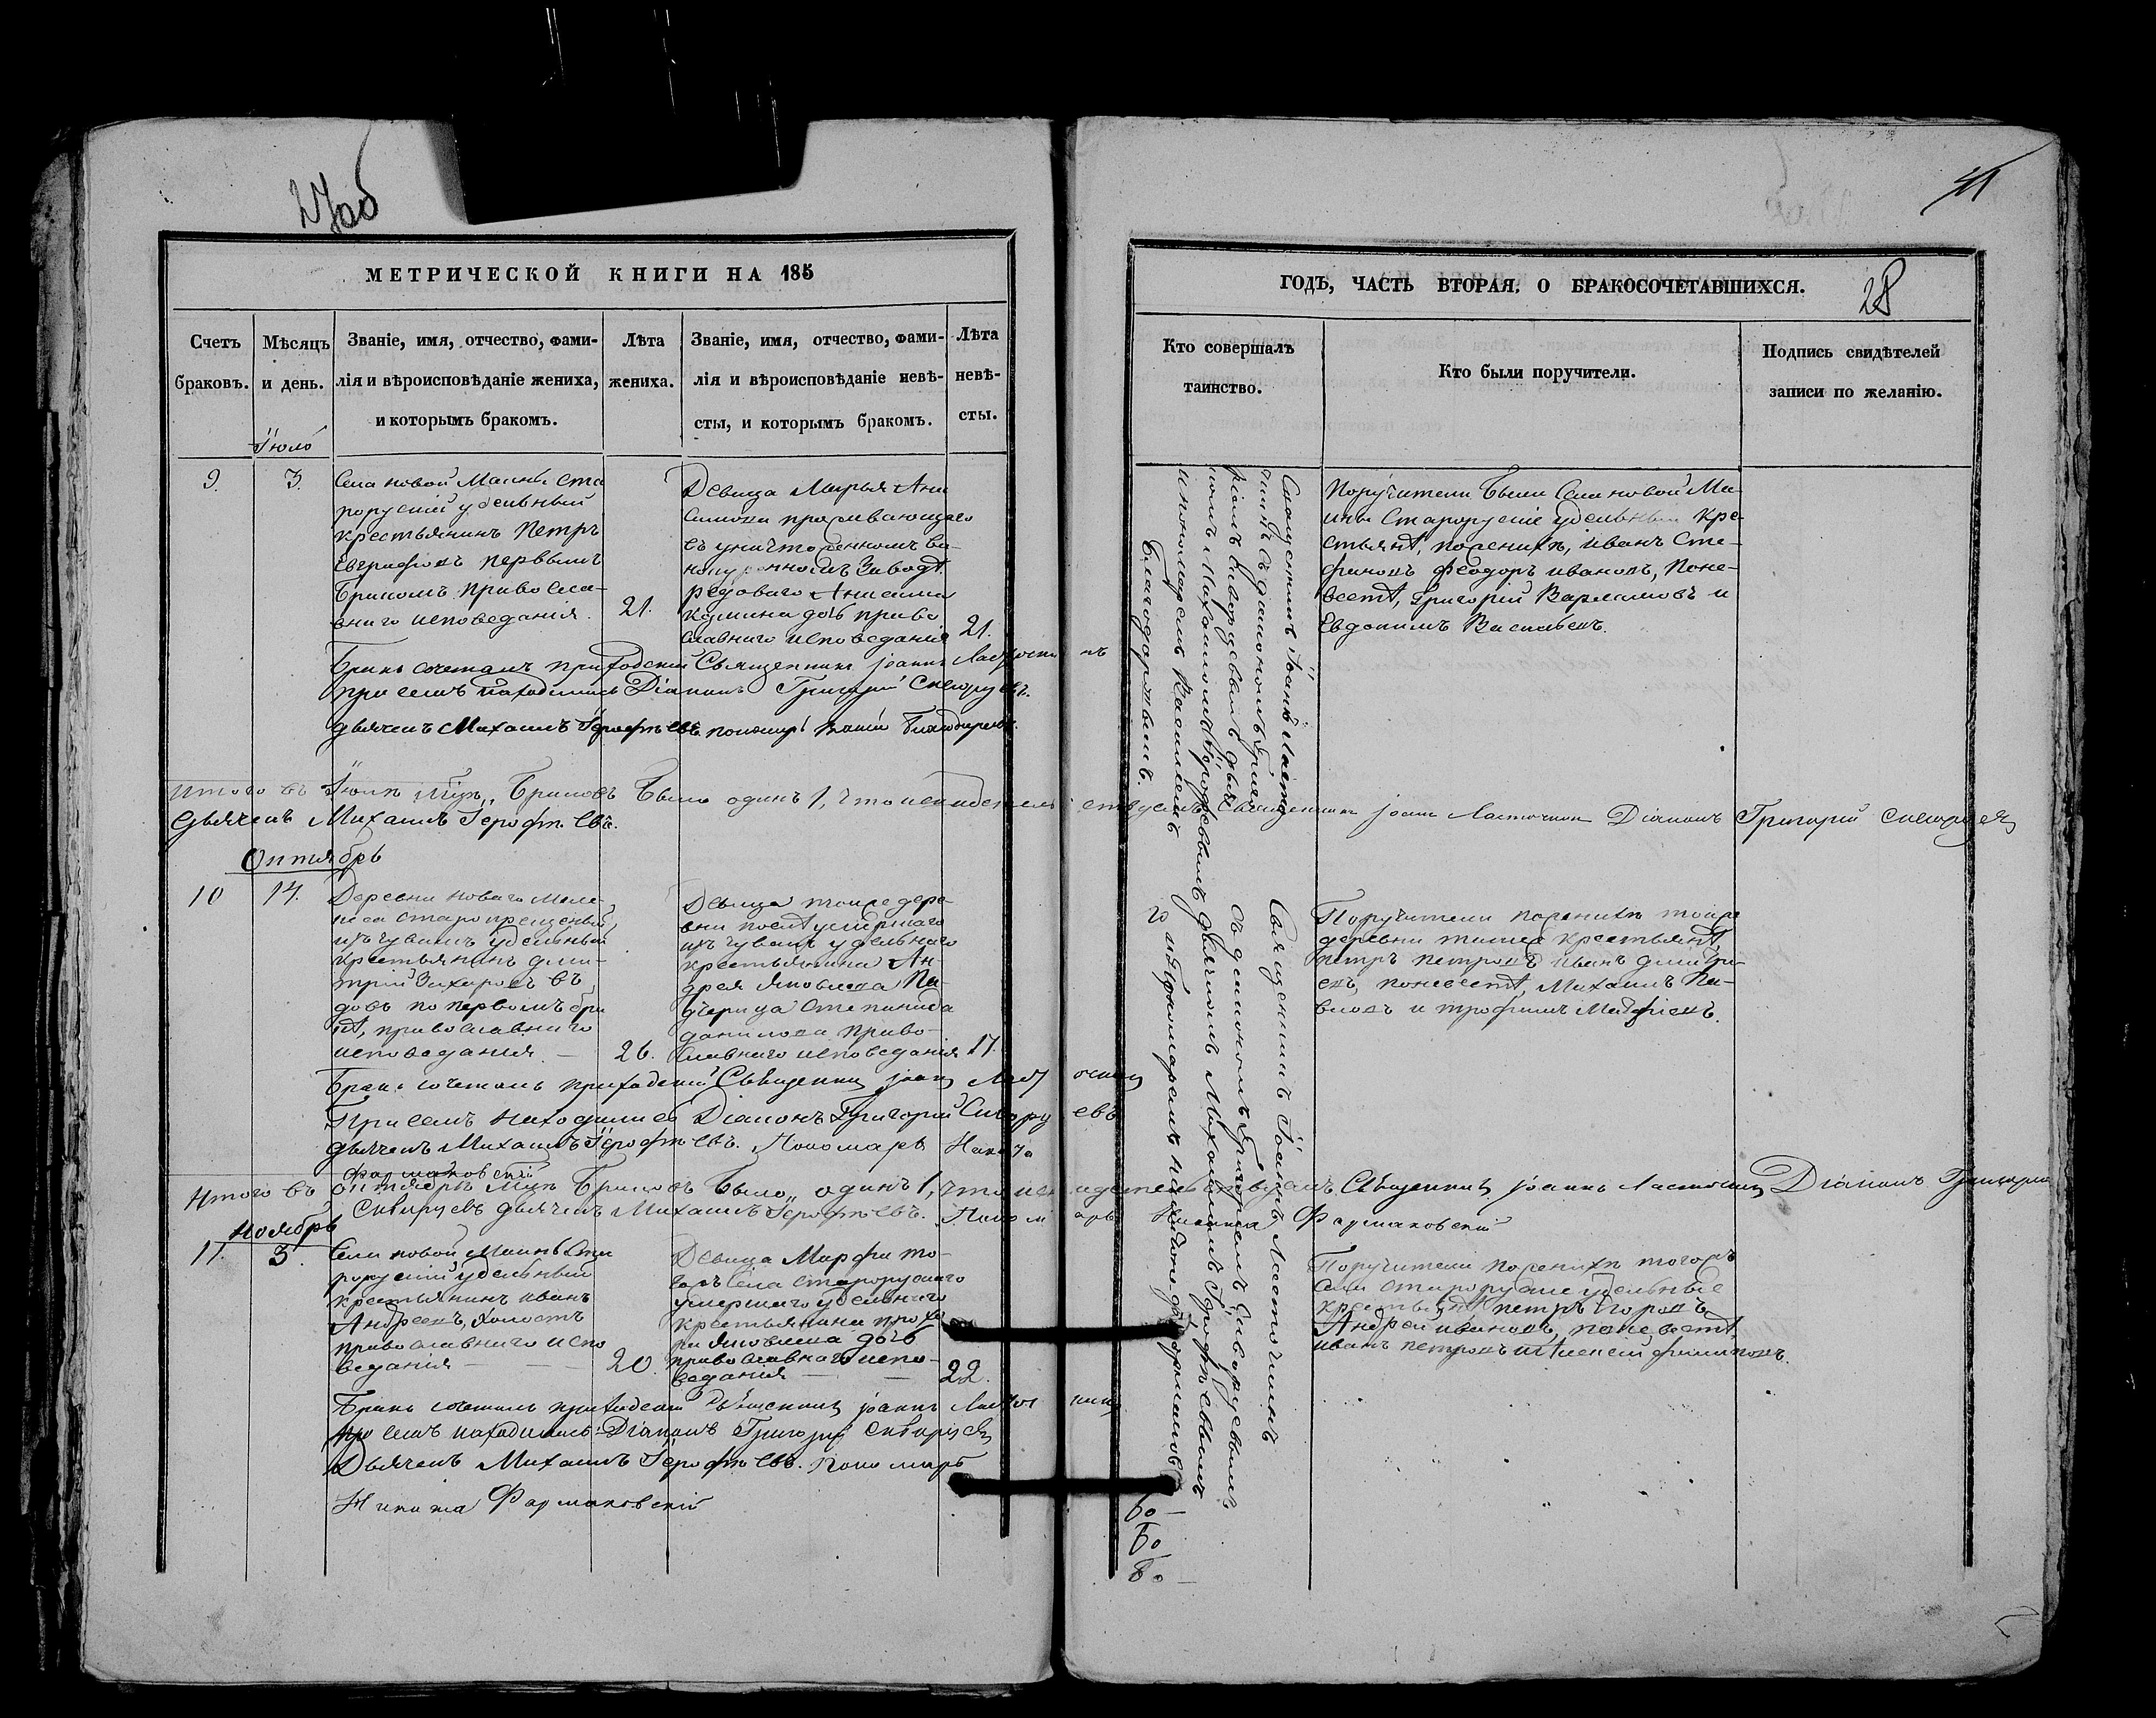 27об
МЕТРИЧЕСКОЙ КНИГИ НА 185
Счетъ браковъ.
Мѣсяцъ и день.
Званіе, имя, отчество, фами-
лія и вѣроисповѣданіе жениха,
и которымъ бракомъ.
Лѣта
жениха.
Званіе, имя, отчество, фами-
лія и вѣроисповѣданіе невѣ-
сты, и которымъ бракомъ.
Лѣта
невѣ-
сты.
9.
3.
Села новой Маины ста
рорускій удельный
крестьянинъ Петръ
Евграфовъ первымъ
бракомъ православ-
наго исповедания.
21.
Девица Марья Ани
симова проживающаго
въ уничтоженномъ ви-
нокуренномъ заводѣ
Анисима
дочь право
славнаго исповедания
21.
Бракъ сочеталъ приходский Священникъ Іоаннъ Ласточкинъ
при семъ находились Діаконъ Григорій Сиворуевъ
дьячекъ Михаилъ Герофѣевъ
Итого въ Іюлѣ браковъ было одинъ 1, что и свидетельствуемъ Священникъ Іоаннъ Ласточкин Діаконъ Григорий
дьячекъ Михаилъ Герофѣевъ.
Октябрь
10
14.
Деревни новаго
старокрещеный
изъ чувашъ удельный
крестьянинъ дми-
трій Захаровъ в
довъ по первомъ бра
кѣ, православнаго
исповедания
26.
Девица тойже дере-
вни умершаго
изъ чувашъ удельнаго
крестьянина Ан-
дрея Яковлева Па-
дчерица Степанида
данилова право-
славнаго исповедания
17.
Бракъ сочеталъ приходский Священникъ Іоаннъ Ласточкин
При семъ находились Діаконъ Григорій Сиворуевъ
дьячекъ Михаилъ Герофѣевъ. Пономарь Никита
Фармаковский
Итого въ октябрѣ браковъ было одинъ 1, что и свидетельствуемъ Священникъ Іоаннъ Ласточкинъ Діаконъ Григорий
дьячекъ Михаилъ Герофѣевъ. Пономарь Никита Фармаковский
Ноябрь
11.
3.
Села новой Маины Ста
рорускій удельный
крестьянинъ иванъ
Андреевъ, холостъ
православнаго испо
ведания
20.
Девица Марфа то-
гожъ Села старорускаго
умершаго удельнаго
крестьянина прохо
ра Яковлева дочь
православнаго испо-
ведания
22.
Бракъ сочеталъ приходский Священникъ Іоаннъ Ласточкин
при семъ находились: Діаконъ Григорій Сиворуевъ
Дьячекъ Михаилъ Герофѣевъ. пономарь
Никита Фармаковский
28
ГОДЪ, ЧАСТЬ ВТОРАЯ. О БРАКОСОЧЕТАВШИХСЯ.
Кто совершалъ
таинство.
Кто были поручители.
Подпись свидѣтелей
записи по желанію.
Священникъ Іоаннъ Ласто
чкинъ съ диакономъ Григо
ріемъ Сиворуевымъ дьяч
комъ Михаиломъ Герофѣевымъ
и пономаремъ Василіемъ
Благодаровымъ.
Поручители были Села новой Ма-
ины Старорусkie удельные кре-
стьянѣ, по женихѣ, иванъ Сте-
фановъ феодоръ ивановъ, По не-
вестѣ, Григорий Варламовъ и
Евдокимъ Васильевъ.
Священникъ Іоаннъ Ласточкинъ
съ диакономъ Григоріемъ Сиворуевымъ
дьячкомъ Михаиломъ Герофѣевымъ
и пономаремъ Никитою Фармаков
Поручители по женихѣ тойже
деревни крестьянѣ,
петръ петровъ иванъ дмитри-
евъ, по невестѣ, Михаилъ Па-
вловъ и трофимъ Матфіевъ.
Поручители по женихѣ тогожъ
Села старорусkie удельные
крестьянѣ петръ Егоровъ
Андрей ивановъ, по невестѣ
иванъ петровъ и Алексей филиповъ.